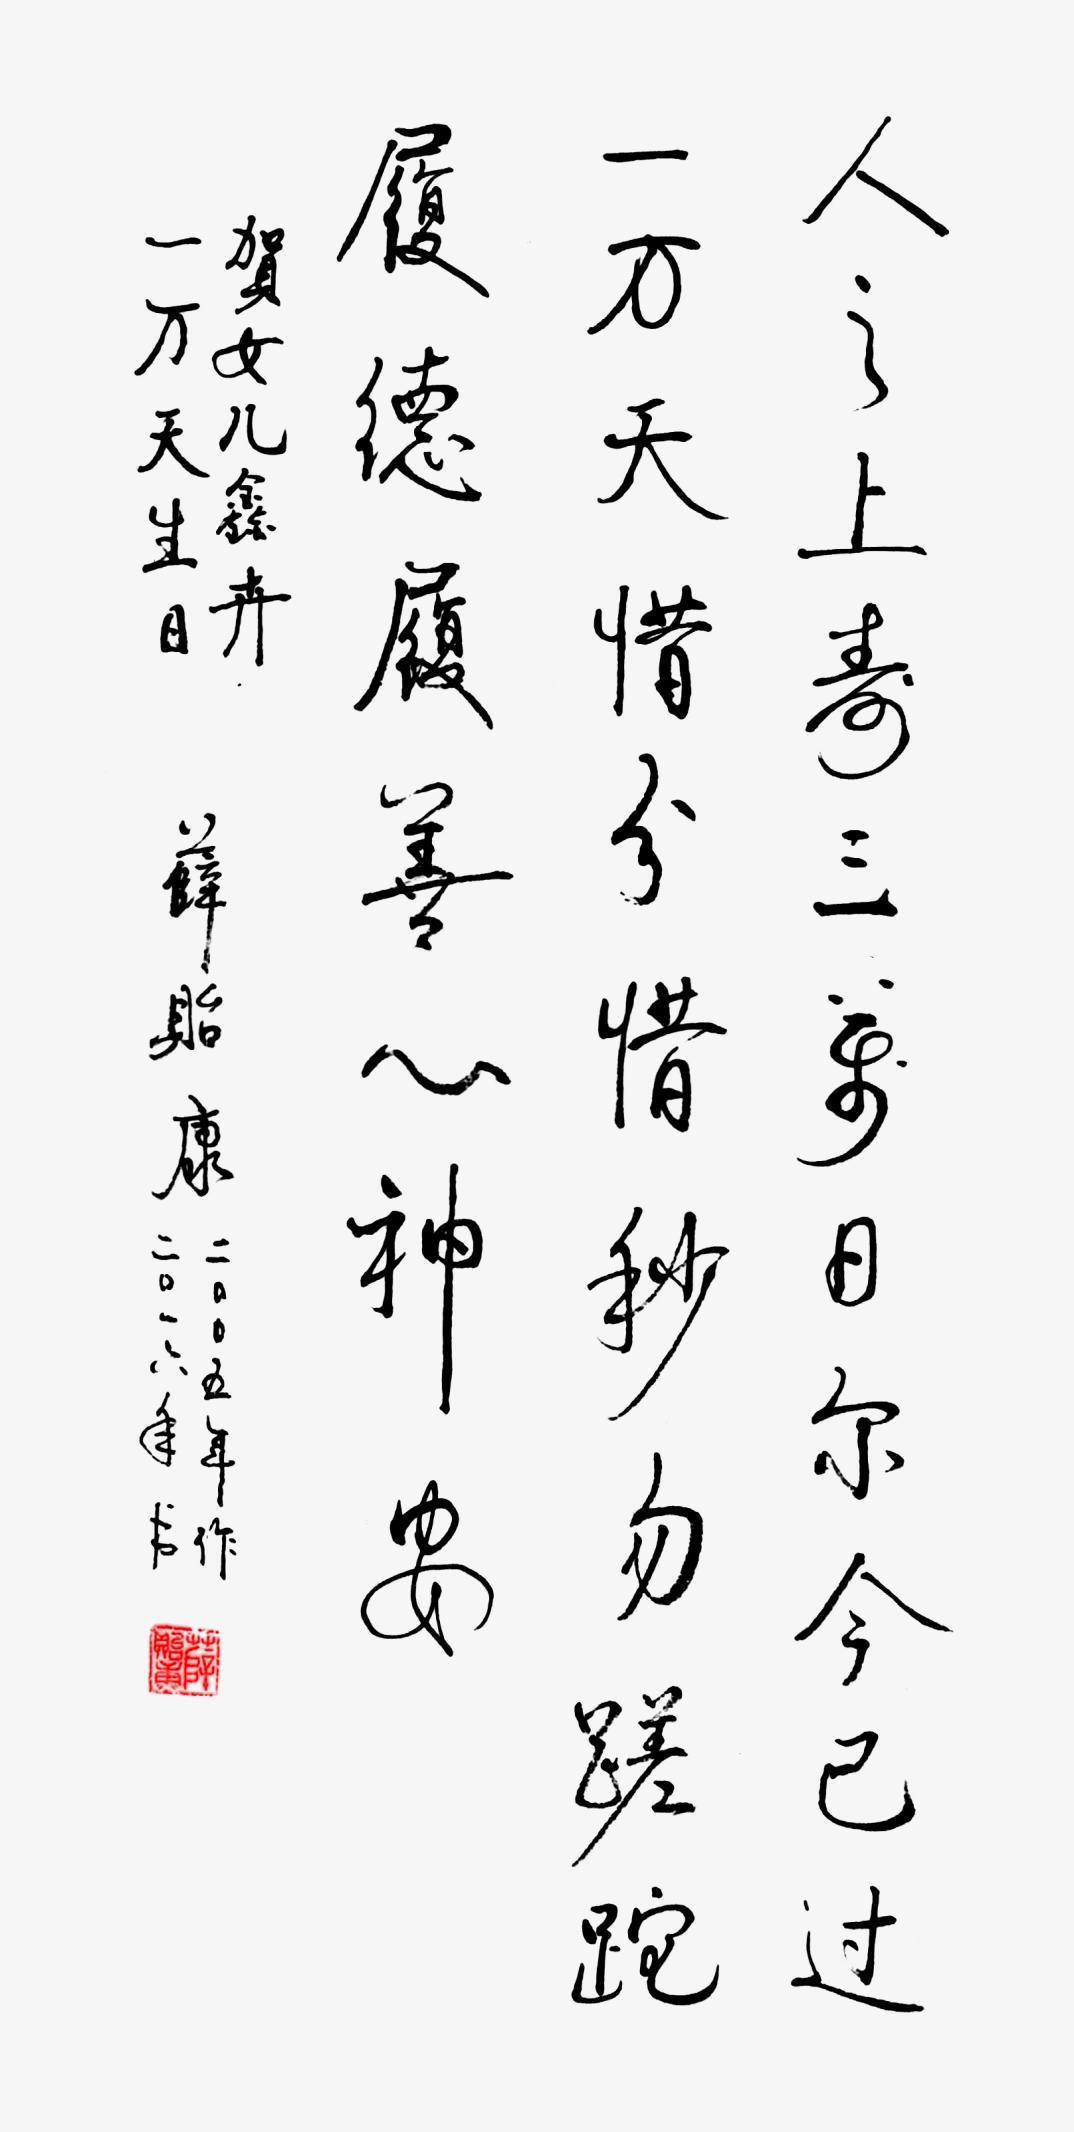 人之上寿三萬日尔今已过
一万天惜分惜秒勿蹉跎
履德履善心神安
賀女儿鑫卉
一万天生日
薛贻康
二〇〇五年作
二〇一六年书
薛贻康